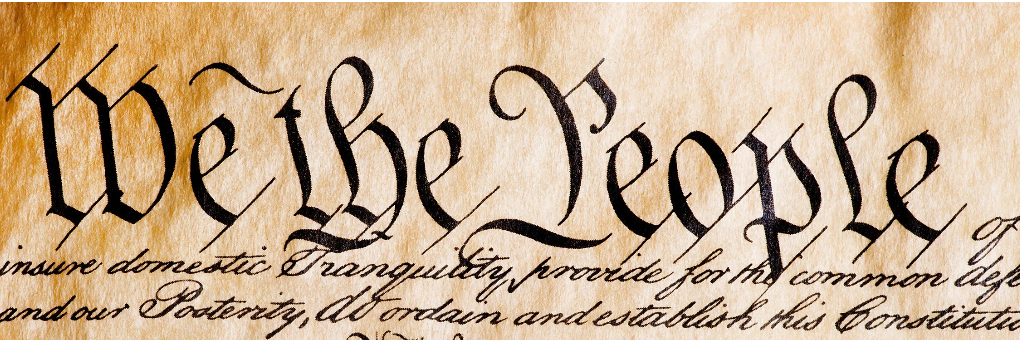 We the People of
insure domestic Tranquility, provide for the common defe
and our Posterity, do ordain and establish this Constituti